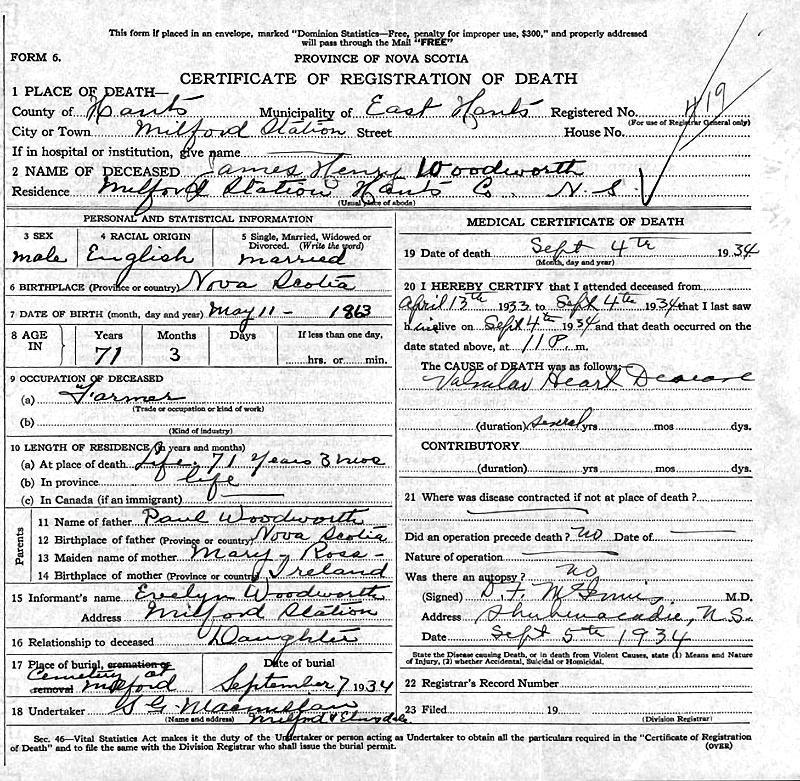 This form if placed in an envelope, marked "Dominion Statistics—Free, penalty for improper use, $300," and properly addressed
will pass through the Mail "FREE"
FORM 6.
PROVINCE OF NOVA SCOTIA
CERTIFICATE OF REGISTRATION OF DEATH
1 PLACE OF DEATH—
County of Hants Municipality of East Hants Registered No. 419
(For use of Registrar General only)
City or Town Milford Station Street House No.
If in hospital or institution, give name
2 NAME OF DECEASED James Henry Woodworth
Residence Milford Station Hants Co. N. S.
(Usual place of abode)
PERSONAL AND STATISTICAL INFORMATION
3 SEX male
4 RACIAL ORIGIN English
5 Single, Married, Widowed or
Divorced. (Write the word)
married
6 BIRTHPLACE (Province or country) Nova Scotia
7 DATE OF BIRTH (month, day and year) May 11 - 1863
8 AGE IN
Years Months Days If less than one day,
71 3 hrs. or min.
9 OCCUPATION OF DECEASED
(a) Farmer
(Trade or occupation or kind of work)
(b)
(Kind of industry)
10 LENGTH OF RESIDENCE (in years and months)
(a) At place of death Life. 71 Years 3 mos
(b) In province life
(c) In Canada (if an immigrant)
Parents
11 Name of father Paul Woodworth
12 Birthplace of father (Province or country) Nova Scotia
13 Maiden name of mother Mary Ross -
14 Birthplace of mother (Province or country) Ireland
15 Informant's name Evelyn Woodworth
Address Milford Station
16 Relationship to deceased Daughter
17 Place of burial, cremation or removal Date of burial
Cemetery at
Milford September 7 1934
18 Undertaker S G Macmillan
(Name and address) Milford & Elmsdale
MEDICAL CERTIFICATE OF DEATH
19 Date of death Sept 4th 1934
(Month, day and year)
20 I HEREBY CERTIFY that I attended deceased from
April 13th 1933 to Sept 4th 1934 that I last saw
him alive on Sept 4th 1934 and that death occurred on the
date stated above, at 11 P. m.
The CAUSE of DEATH was as follows:
Valvular Heart Disease
(duration) several yrs mos dys.
CONTRIBUTORY
(duration) yrs mos dys.
21 Where was disease contracted if not at place of death?
Did an operation precede death? no Date of
Nature of operation
Was there an autopsy? no
(Signed) D. F. McInnis M.D.
Address Shubenacadie, N.S.
Date Sept 5th 1934
State the Disease causing Death, or in death from Violent Causes, state (1) Means and Nature
of Injury, (2) whether Accidental, Suicidal or Homicidal.
22 Registrar's Record Number
23 Filed 19
(Division Registrar)
Sec. 46—Vital Statistics Act makes it the duty of the Undertaker or person acting as Undertaker to obtain all the particulars required in the "Certificate of Registration
of Death" and to file the same with the Division Registrar who shall issue the burial permit.
(OVER)